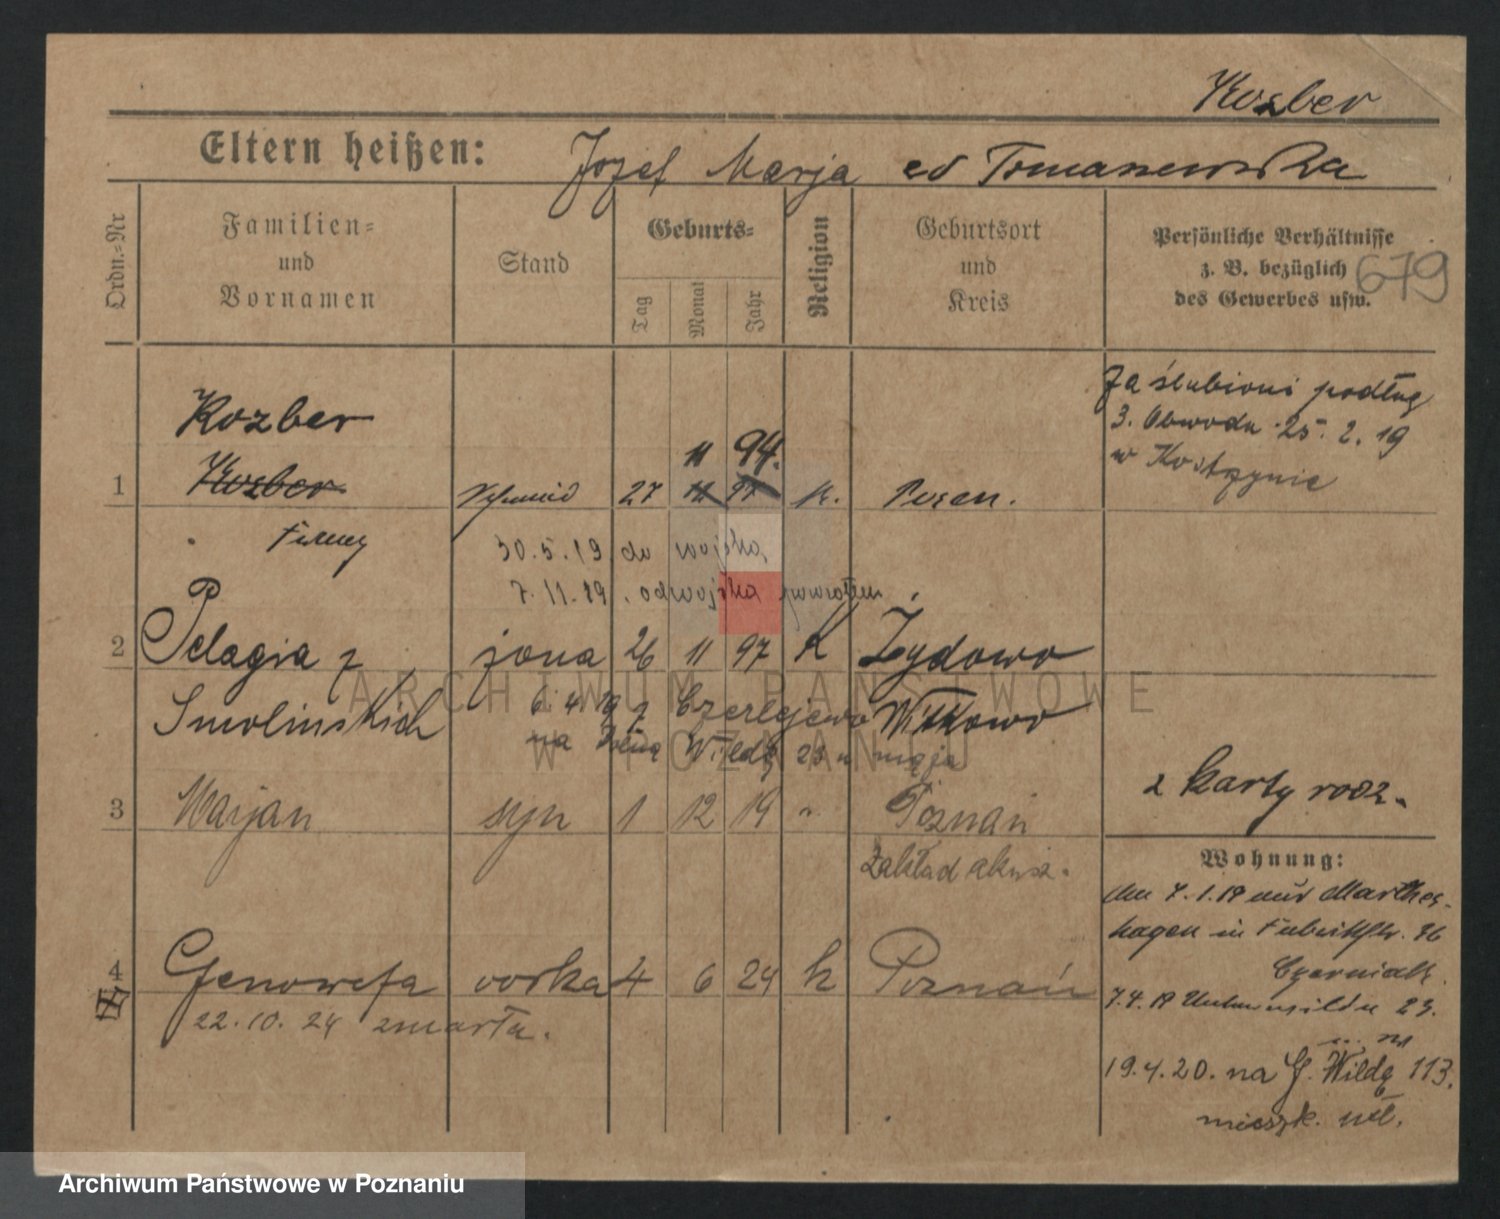 Kozber
Eltern heißen: Jozef Marja ed Tomaszewska
Ordn.-Nr
Familien-
und
Vornamen
Stand
Geburts-
Tag
Monat
Jahr
Religion
Geburtsort
und
Kreis
Persönliche Verhältnisse
z. B. bezüglich
des Gewerbes usw.
679
Zaślubioni podług
3. Obwodu 25. 2. 19
w Kostrzynie
Kozber
11 94.
1 Kozber Schmied 27 11 97 k. Posen.
30.5.19 do wojska
7.11.19. od wojska powrotem
2 Pelagia z żona 26 11 97 K Żydowo
Smolinskich 6. 4. 19 z Czerlejewo Witkowo
na Dolną Wildę 23 u męża
2 karty rodz.
3 Marjan syn 1 12 19 " Poznań
Zakład akusz.
Wohnung:
am 7.1.19 aus Marthes-
hagen in Fabrikstr. 36
7.4.19 Unterwilda 23.
4 Genowefa corka 4 6 24 k Poznań
22.10.24 zmarła.
19.4.20. na G. Wildę 113.
mieszk.
ARCHIWUM PAŃSTWOWE
W POZNANIU
Archiwum Państwowe w Poznaniu